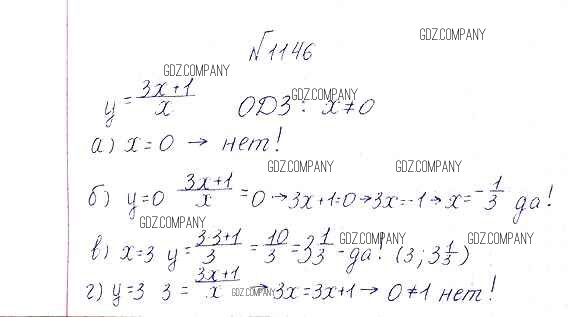 GDZ.COMPANY
№1146
GDZ.COMPANY
y = (3x+1)/x   ОДЗ: x ≠ 0
GDZ.COMPANY
а) x = 0 → нет!
GDZ.COMPANY GDZ.COMPANY
б) y = 0 (3x+1)/x = 0 → 3x+1=0 → 3x=-1 → x = -1/3 да!
GDZ.COMPANY
в) x = 3 y = (3·3+1)/3 = 10/3 = 3 1/3 - да! (3; 3 1/3)
GDZ.COMPANY GDZ.COMPANY
г) y = 3 3 = (3x+1)/x → 3x = 3x+1 → 0 ≠ 1 нет!
GDZ.COMPANY